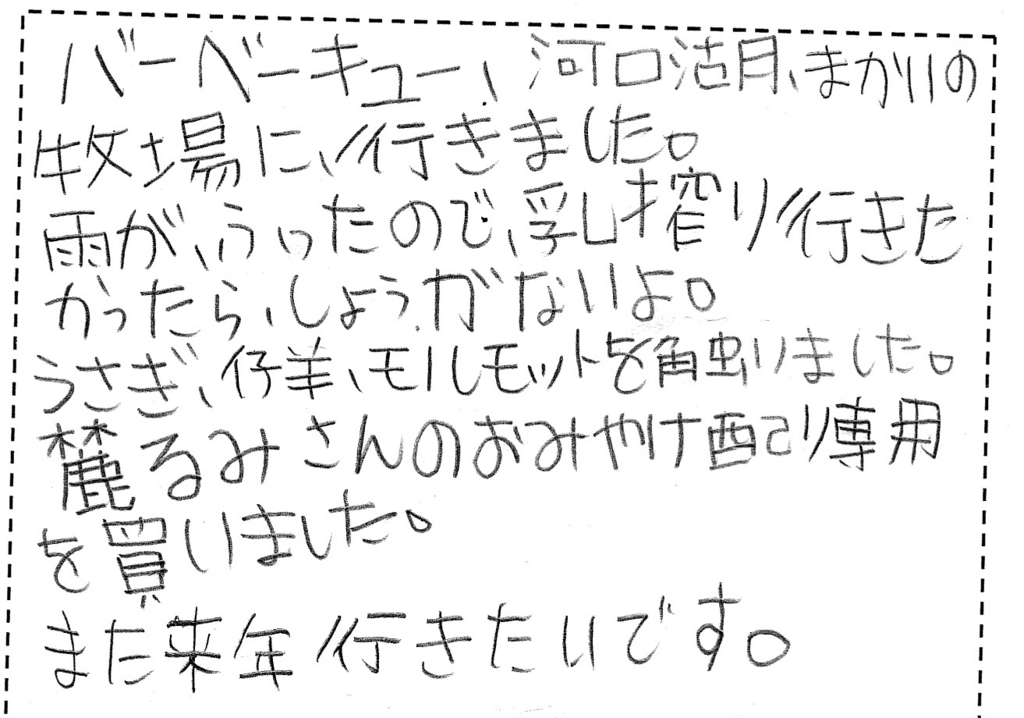 バーベーキュー、河口湖、まかいの
牧場に、行きました。
雨が、ふったので、乳し搾り行きた
かったら、しょうがないよ。
うさぎ、仔羊、モルモットを触りました。
麓るみさんのおみやげ配り専用
を買いました。
また来年行きたいです。